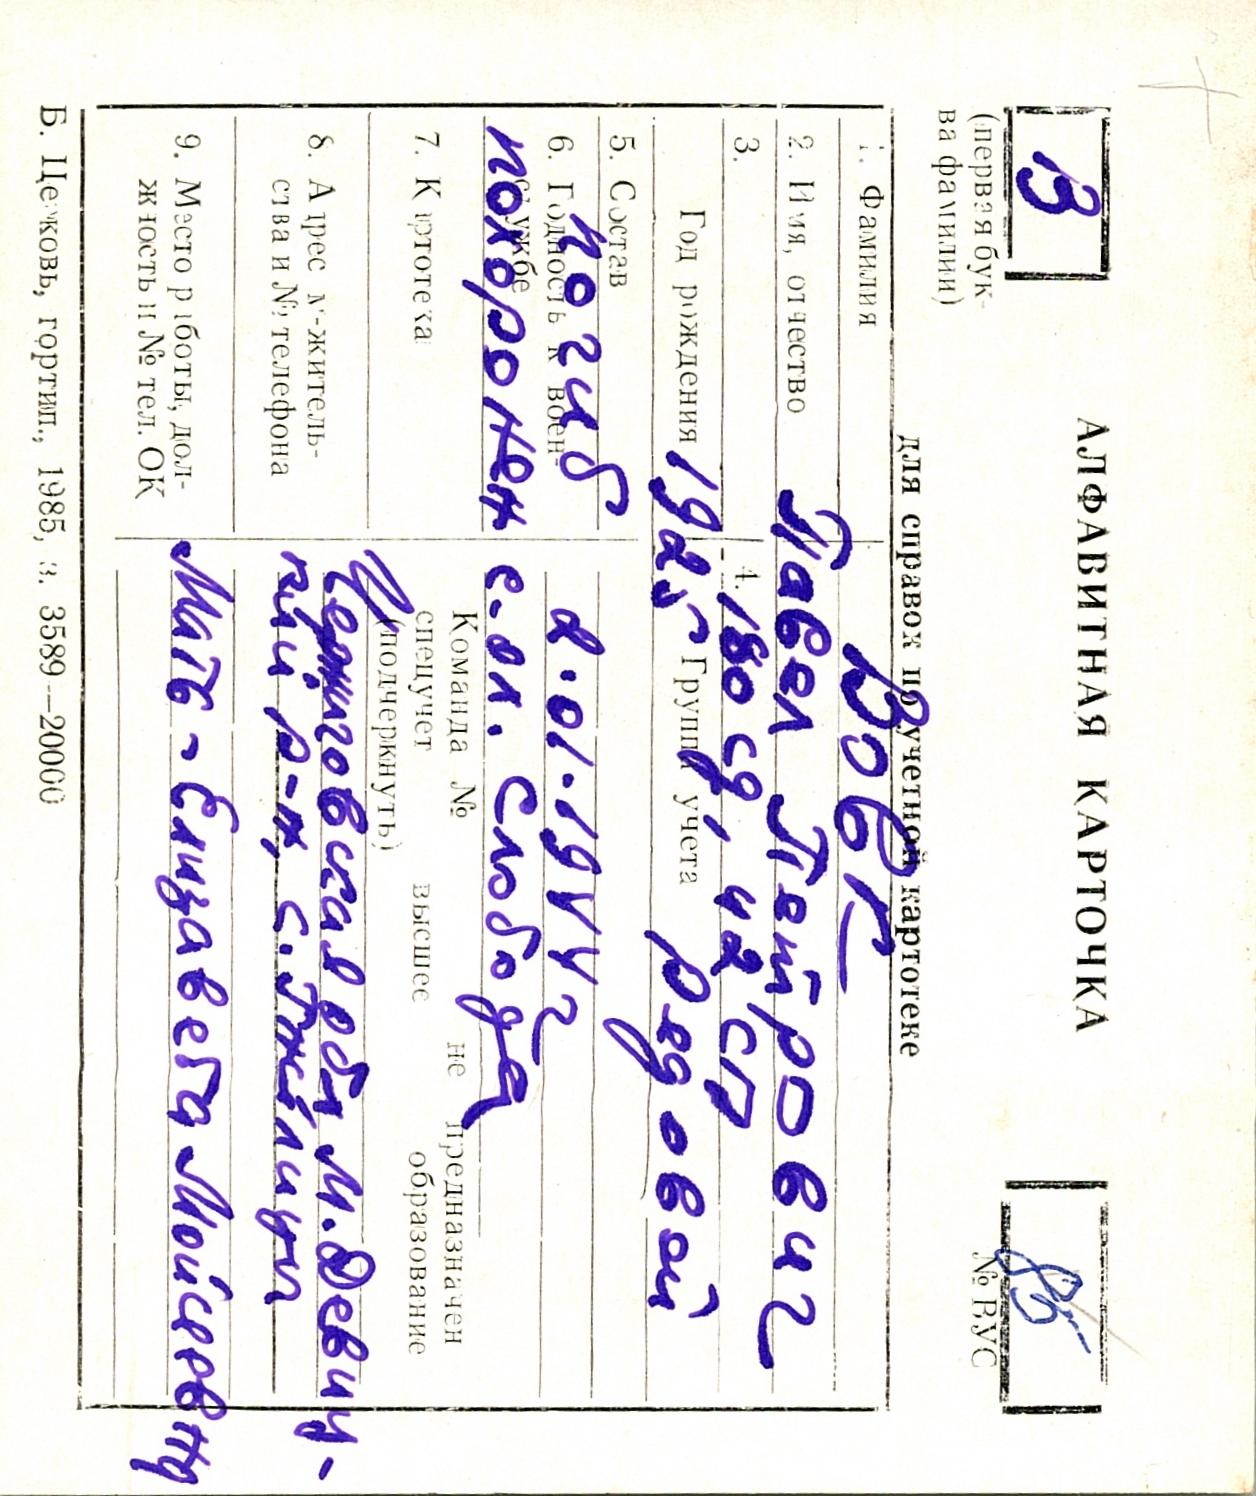 В
(первая бук-
ва фамилии)
АЛФАВИТНАЯ КАРТОЧКА
для справок по учетной карточке
85
№ ВУС
1. Фамилия Вовк
2. Имя, отчество Павел Петрович
3. 4. 180 сд, 42 сп
Год рождения 1925 Группа учета рядовой
5. Состав
6. Годность к воен-
службе
погиб 2.01.1944 г
похоронен с. Ол. Слобода
7. Картотека
Команда № не предназначен
спецучет высшее образование
(подчеркнуть)
8. Адрес м-житель-
ства и № телефона
Черниговская обл М. Девиц-
кий р-н, с.
9. Место работы, дол-
жность и № тел. ОК
Мать - Елизавета Мойсеевна
Б. Церковь, гортип., 1985, з. 3589—20000